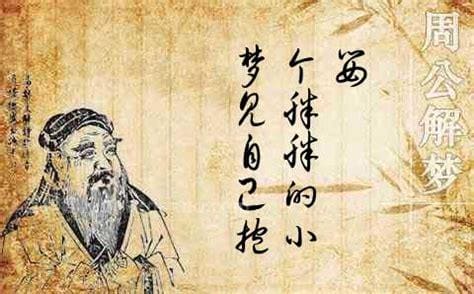 周公解梦
梦见自己抱
个胖胖的小
婴